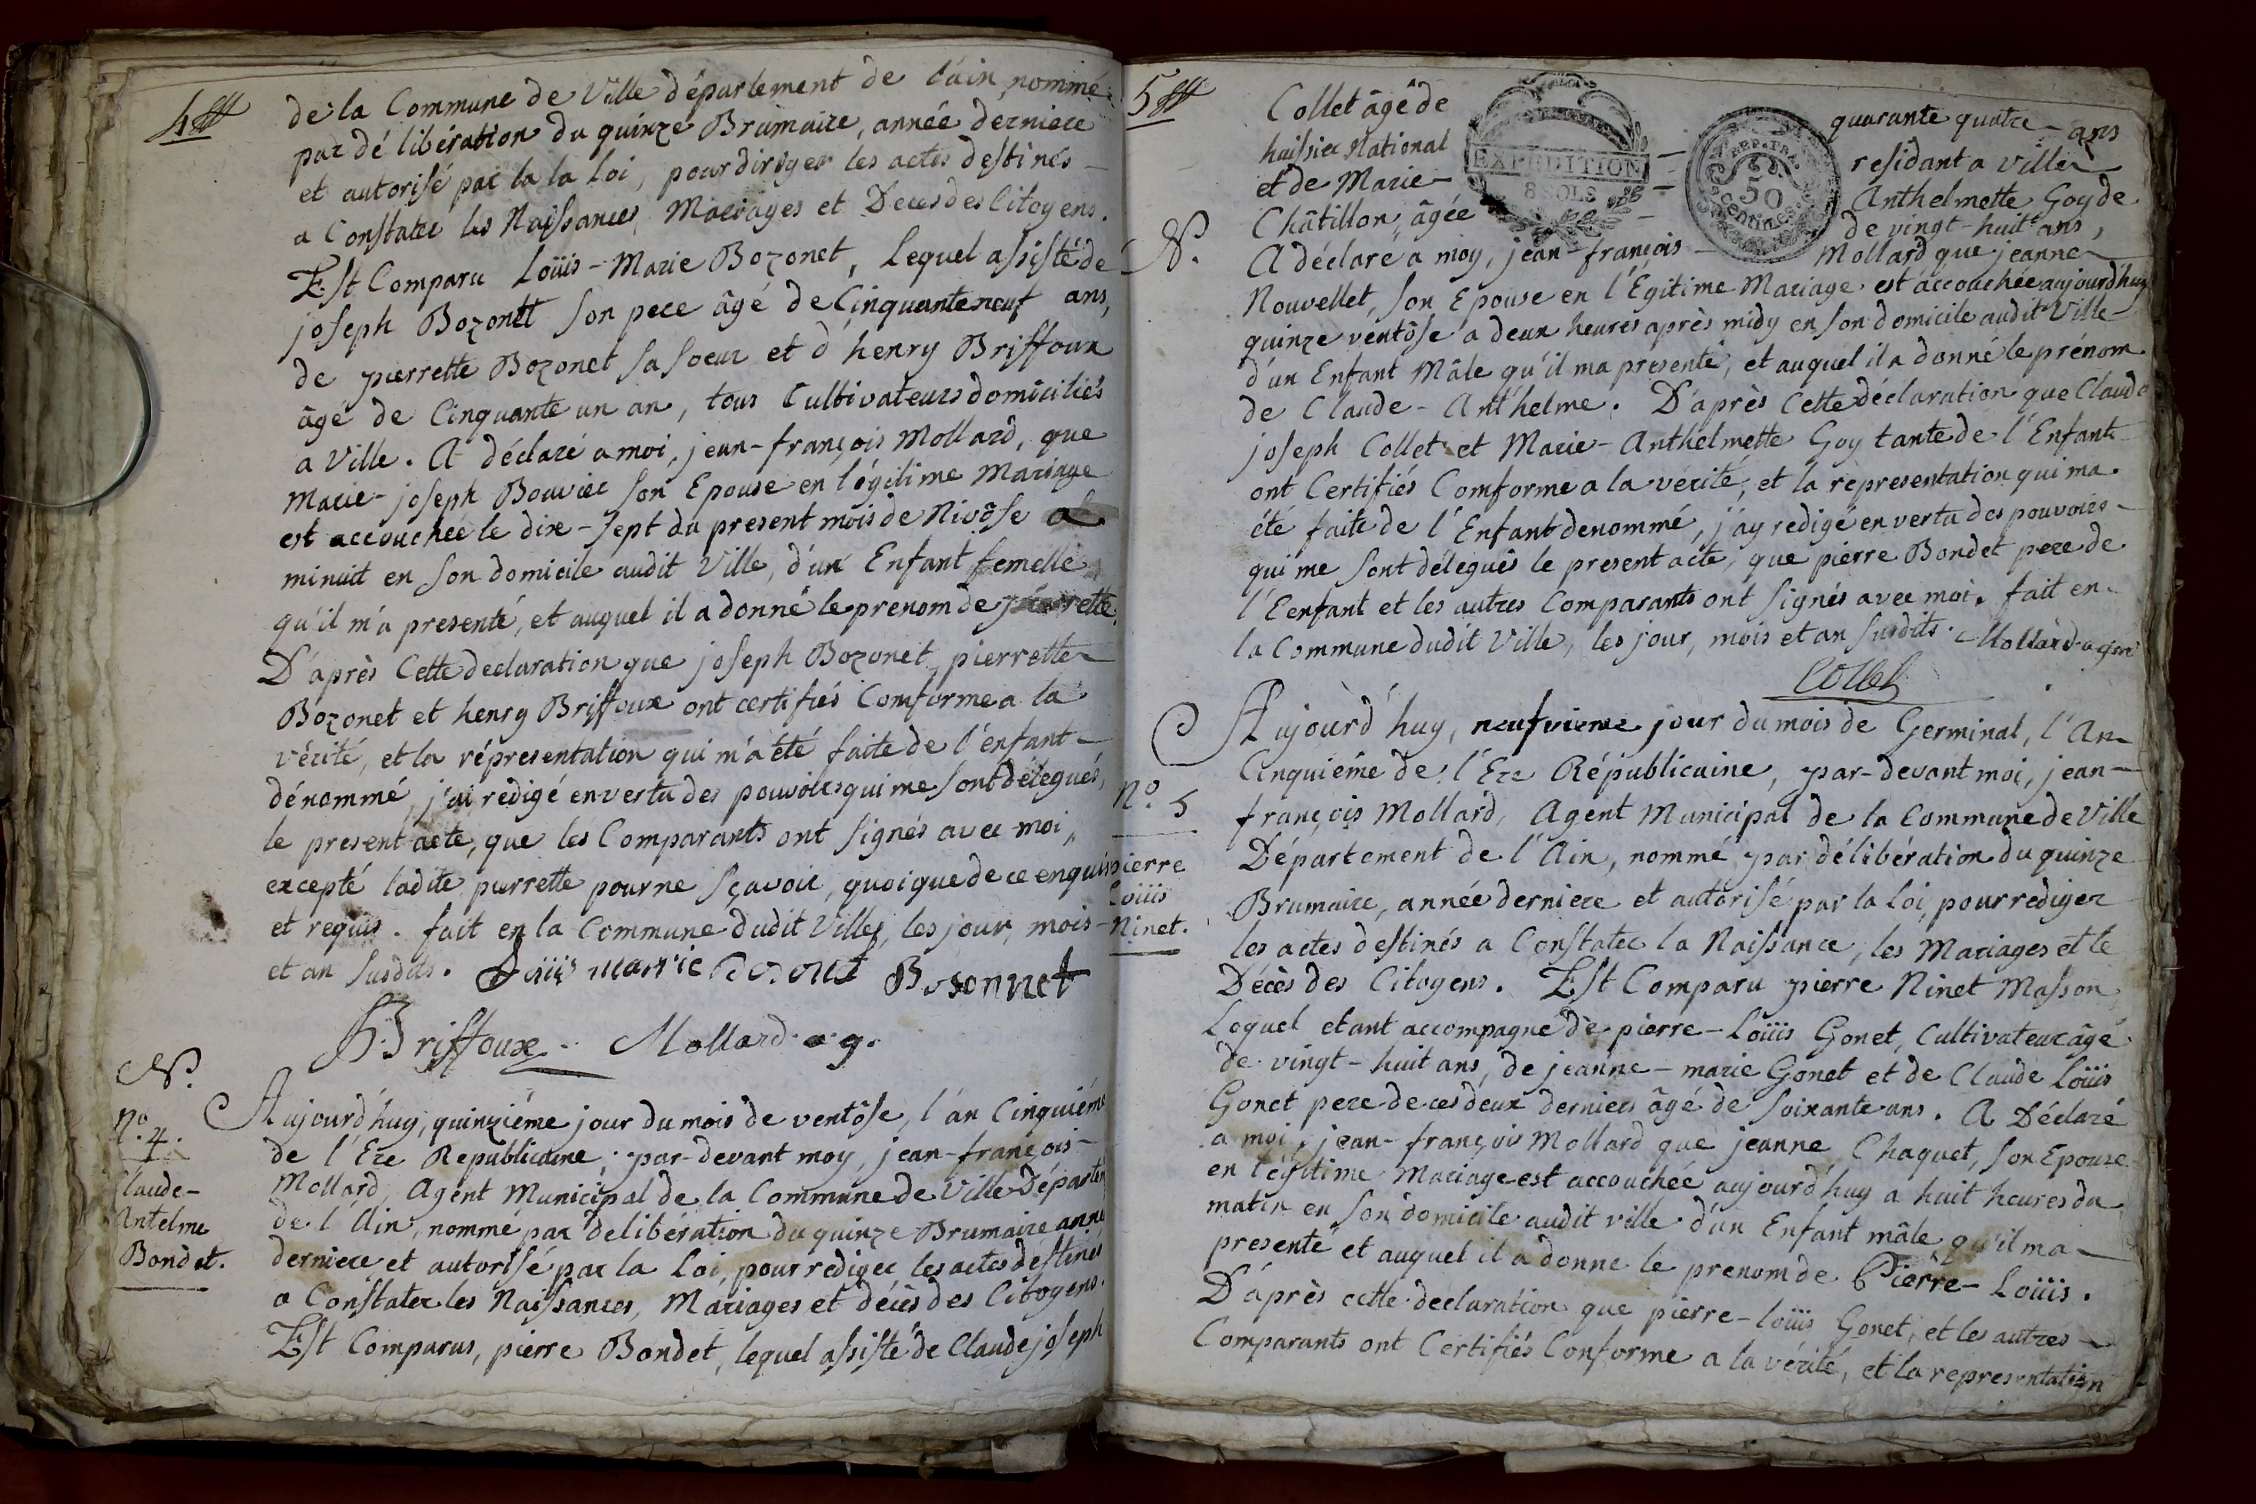 4
de la Commune de Ville département de l'ain, nommé
par dé libération du quinze Brumaire, année derniere
et autorisé par la la Loi, pour diriger les actes destinés
a Constater les Naissances, Mariages et Deces des Citoyens.
Est Comparu Loüis-Marie Bozonet, Lequel assisté de
joseph Bozonet son pere âgé de Cinquante neuf ans,
de pierrette Bozonet sa soeur et d'henry Briffoux
âgé de Cinquante un an, tous Cultivateurs domiciliés
a Ville. A déclaré a moi, jean-françois Mollard, que
Marie-joseph Bouvier son Epouse en légitime Mariage
est accouchée le dix-sept du present mois de Nivôse a
minuit en son domicile audit Ville, d'un Enfant femelle
qu'il m'a presenté, et auquel il a donné le prenom de pierrette.
D'après Cette declaration que joseph Bozonet, pierrette
Bozonet et henry Briffoux ont certifiés Comforme a la
vérité, et la répresentation qui m'a été faite de l'enfant
dénommé, j'ai redigé en vertu des pouvoirs qui me sont délegués,
le present acte, que les Comparants ont signés avec moi,
excepté ladite pierrette pour ne sçavoir, quoique de ce enquis
et requis. fait en la Commune dudit Ville, les jour, mois
et an susdits. Louis marie Bozonet Bosonnet
H. Briffoux Mollard. ag.
N.
N.º 4.
Claude-
Antelme
Bondet.
Aujourd'huy, quinziéme jour du mois de ventôse, l'an Cinquiéme
de l'Ere Republicaine, par-devant moy, jean-françois-
Mollard, Agent Municipal de la Commune de Ville Départem
de l'Ain, nommé par deliberation du quinze Brumaire anné
derniere et autorisé par la Loi, pour rediger les actes destinés
a Constater les Naissances, Mariages et décès des Citoyens.
Est Comparus, pierre Bondet, lequel assisté de Claude joseph
5
EXPEDITION
8 SOLS
REP. FRA.
50
centimes
Collet âgé de quarante quatre ans
huissier National residant a Ville
et de Marie Anthelmette Goy de
Châtillon, âgée de vingt-huit ans,
N.
A déclaré a moy, jean-françois Mollard que jeanne
Nouvellet, son Epouse en l'Egitime Mariage est accouchée aujourd'huy
quinze ventôse a deux heures après midy en son domicile audit Ville
d'un Enfant Mâle qu'il ma presenté, et auquel il a donné le prénom
de Claude-Anthelme. D'après Cette déclaration que Claude
joseph Collet et Marie-Anthelmette Goy tante de l'Enfant
ont Certifiés Comforme a la vérité, et la répresentation qui ma
été faite de l'Enfant denommé, j'ay redigé en vertu des pouvoirs
qui me sont délegués le present acte, que pierre Bondet pere de
l'Eenfant et les autres Comparants ont signés avec moi. fait en
la Commune dudit Ville, les jour, mois et an susdits. Mollard. agen
Collet
Aujourd'huy, neufvieme jour du mois de Germinal, l'An
Cinquiéme de l'Ere Républicaine, par-devant moi, jean-
françois Mollard, Agent Municipal de la Commune de Ville
Département de l'Ain, nommé par délibération du quinze
Brumaire, année derniere et autorisé par la Loi, pour rediger
les actes destinés a Constater la Naissance, les Mariages et le
Décès des Citoyens. Est Comparu pierre Ninet Masson,
Lequel etant accompagné de pierre-Loüis Gonet, Cultivateur âgé
de vingt-huit ans, de jeanne-marie Gonet et de Claude Loüis
Gonet pere de ces deux derniers âgé de soixante ans. A Déclaré
a moi, jean-françois Mollard que jeanne Chaquet, son Epouse
en légitime Mariage est accouchée aujourd'huy a huit heures du
matin en son domicile audit ville d'un Enfant mâle qu'il ma
presenté et auquel il a donné le prenom de Pierre-Loüis.
D'après cette declaration que pierre-loüis Gonet, et les autres
Comparants ont Certifiés Conforme a la vérité, et la representation
N.º 5
pierre
Loüis
Ninet.